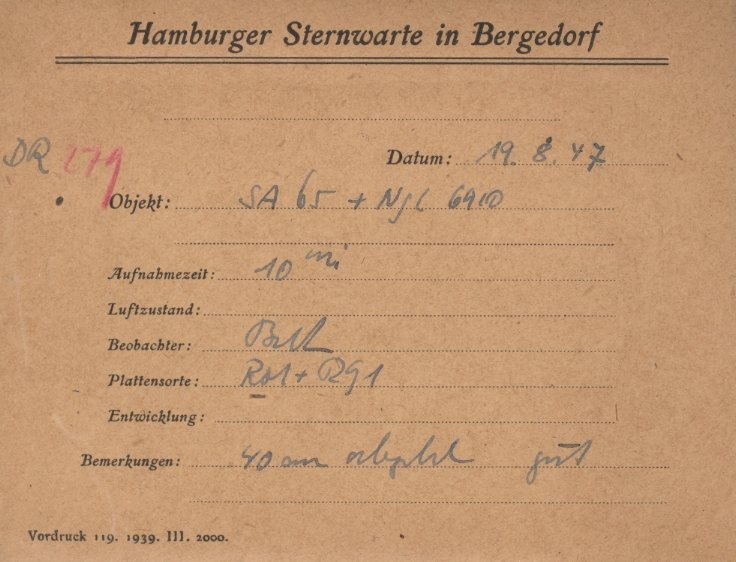 Hamburger Sternwarte in Bergedorf
DR 279
Datum: 19. 8. 47
Objekt: SA 65 + NGC 6910
Aufnahmezeit: 10 mi
Luftzustand:
Beobachter:
Plattensorte: Rot + RG1
Entwicklung:
Bemerkungen: 40 cm gut
Vordruck 119. 1939. III. 2000.